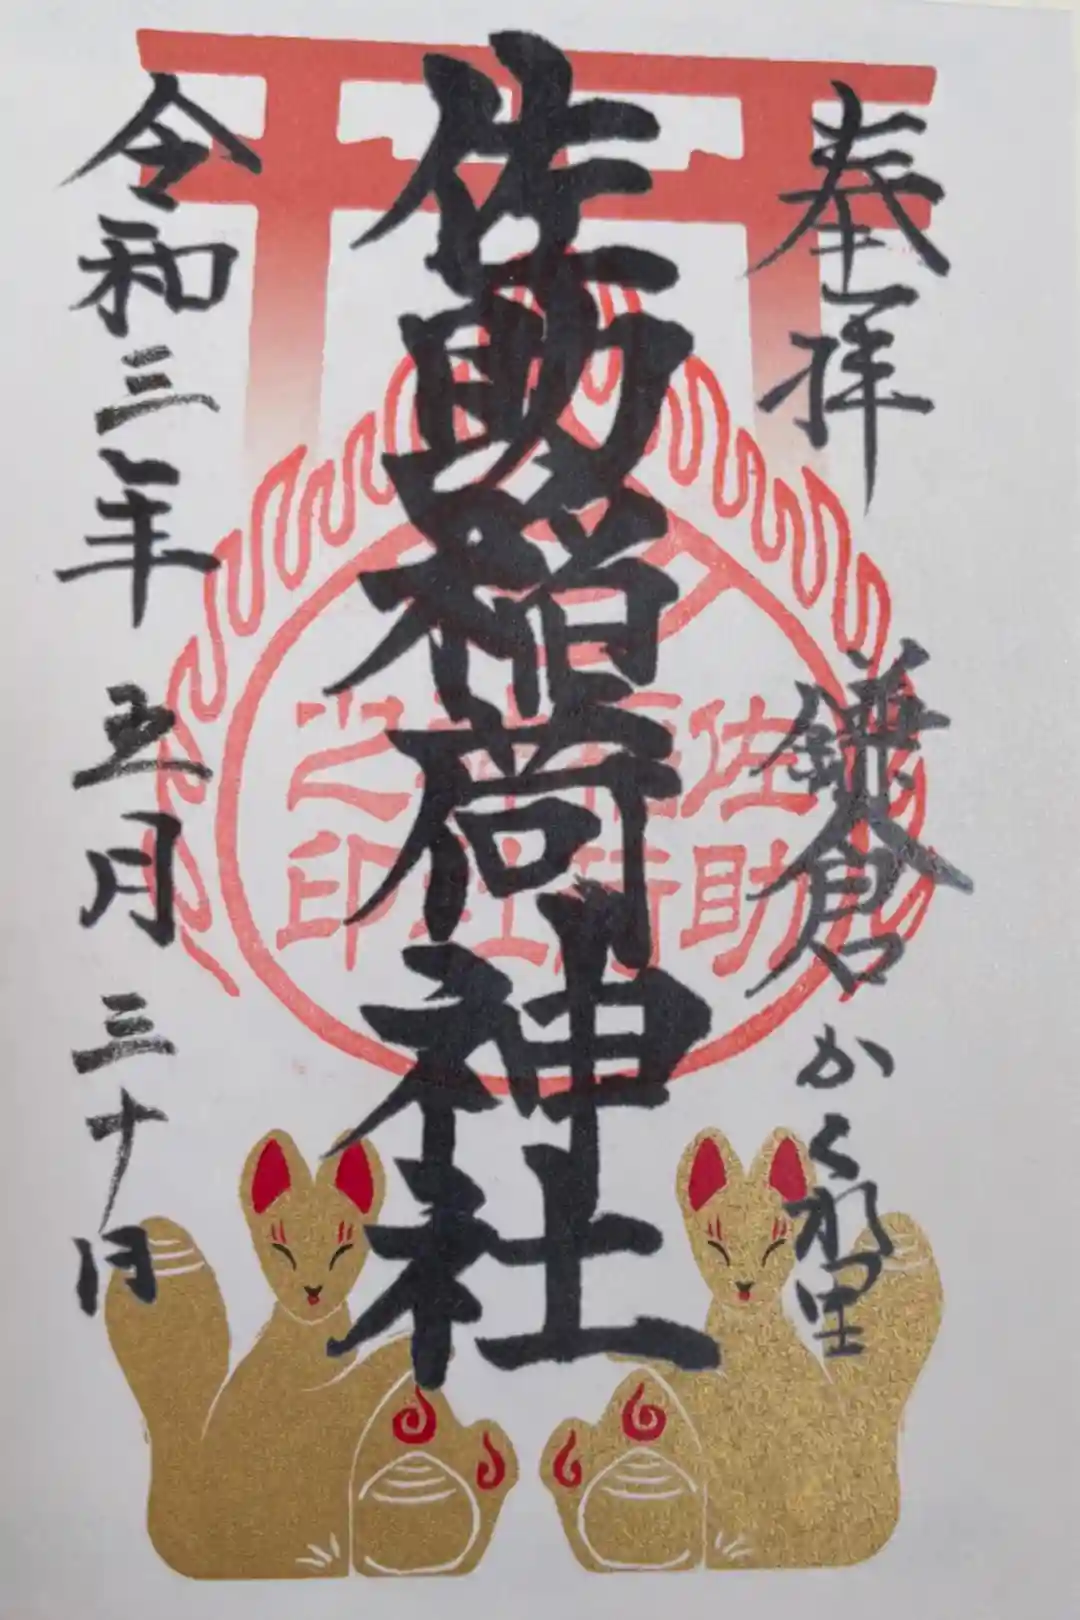 奉拝
鎌倉かくれ里
佐助稲荷神社
佐助稲荷神社之印
令和三年五月三十日